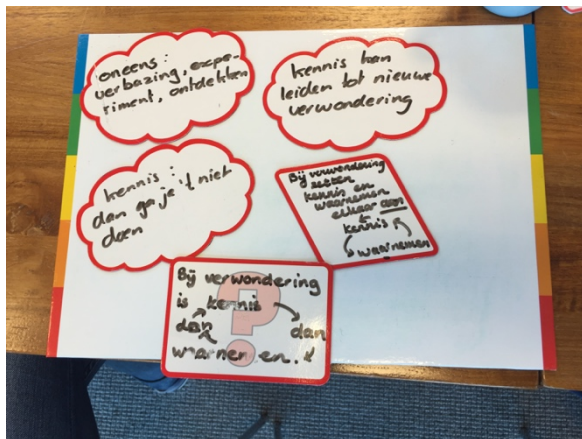 oneens:
verbazing, expe-
riment, ontdekken
kennis kan
leiden tot nieuwe
verwondering
kennis:
dan ga je 't niet
doen
Bij verwondering
zetten
kennis en
waarnemen
elkaar aan
kennis
waarnemen
Bij verwondering
is kennis
dan dan
waarnemen.
?